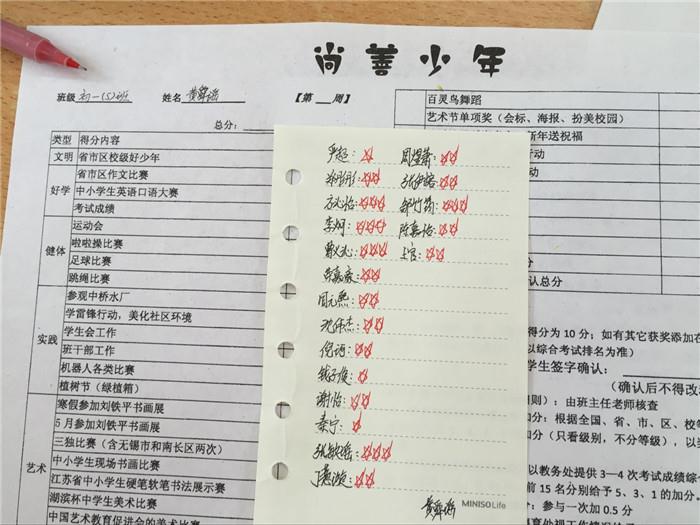 尚善少年
班级 初一(5)班 姓名 黄舜瑶 【第 周】
总分:
类型 得分内容
文明 省市区校级好少年
省市区作文比赛
好学 中小学生英语口语大赛
考试成绩
运动会
健体 啦啦操比赛
足球比赛
跳绳比赛
参观中桥水厂
学雷锋行动，美化社区环境
实践 学生会工作
班干部工作
机器人各类比赛
植树节（绿植箱）
寒假参加刘铁平书画展
5月参加刘铁平书画展
三独比赛（含无锡市和南长区两次）
艺术 中小学生现场书画比赛
江苏省中小学生硬笔软笔书法展示赛
湖滨杯中学生美术比赛
中国艺术教育促进会的美术比赛
严超：☆
☆☆
☆☆☆ ☆☆
☆☆☆ ☆☆☆
李炯：☆☆☆ 陈嘉怡：☆☆
☆☆☆ 上官：☆☆
☆☆
周元熙：☆☆
沈伟杰：☆☆
倪语：☆☆
钱子俊：☆
谢怡：☆☆
秦宁：☆
张敏瑶：☆☆☆
☆☆
MINISO Life
百灵鸟舞蹈
艺术节单项奖（会标、海报、扮美校园）
新年送祝福
动
行动
总分
得分为10分；如有其它获奖添加在
以综合考试排名为准）
学生签字确认：
（确认后不得改
则）：由班主任老师核查
加分：根据全国、省、市、区、校等
分（只看级别，不分等级），以当
以教务处提供3—4次考试成绩综合
前15名分别给予5、3、1的加分。
：参与一次加0.5分